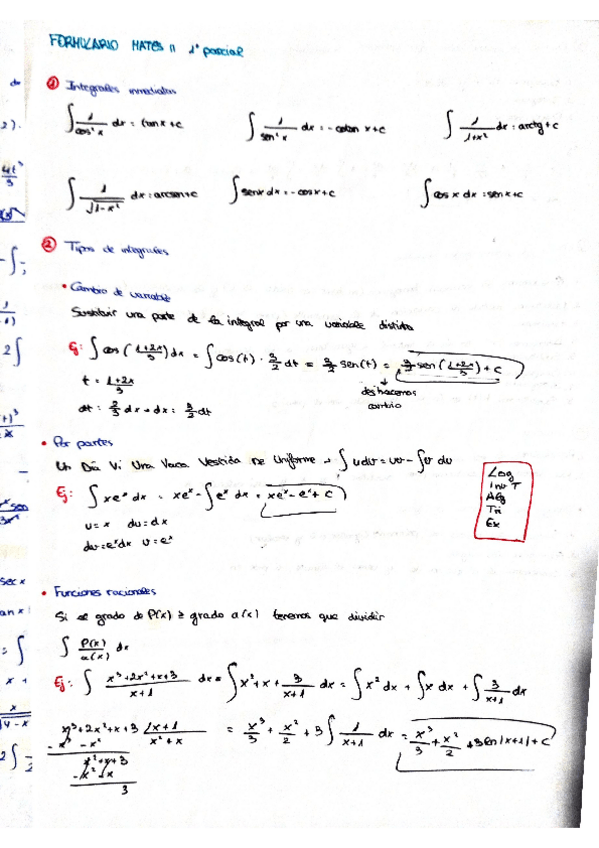 FORMULARIO MATES II 1º parcial
① Integrales inmediatas
∫ 1/cos²x dx = tan x + c   ∫ 1/sen²x dx = - cotan x + c   ∫ 1/1+x² dx = arctg + c
∫ 1/√1-x² dx = arcsen + c   ∫ senx dx = - cosx + c   ∫ cos x dx = senx + c
② Tipos de integrales
• Cambio de variable
Sustituir una parte de la integral por una variable distinta
Ej: ∫ cos (1+2x/3) dx = ∫ cos(t) · 3/2 dt = 3/2 sen(t) = 3/2 sen (1+2x/3) + C
t = 1+2x/3
deshacemos
cambio
dt = 2/3 dx → dx = 3/2 dt
• Por partes
Un Día Vi Una Vaca Vestida De Uniforme → ∫ u dv = uv - ∫ v du
Log
Inv T
Alg
Tri
Ex
Ej: ∫ xeˣ dx = xeˣ - ∫ eˣ dx = xeˣ - eˣ + C
u = x   du = dx
dv = eˣdx   v = eˣ
• Funciones racionales
Si el grado de P(x) ≥ grado Q(x) tenemos que dividir
∫ P(x)/Q(x) dx
Ej: ∫ x³+2x²+x+3/x+1 dx = ∫ x² + x + 3/x+1 dx = ∫ x² dx + ∫ x dx + ∫ 3/x+1 dx
x³+2x²+x+3 | x+1   = x³/3 + x²/2 + 3 ∫ 1/x+1 dx = x³/3 + x²/2 + 3 ln |x+1| + C
- x³ - x²   x² + x
x² + x + 3
- x² - x
3